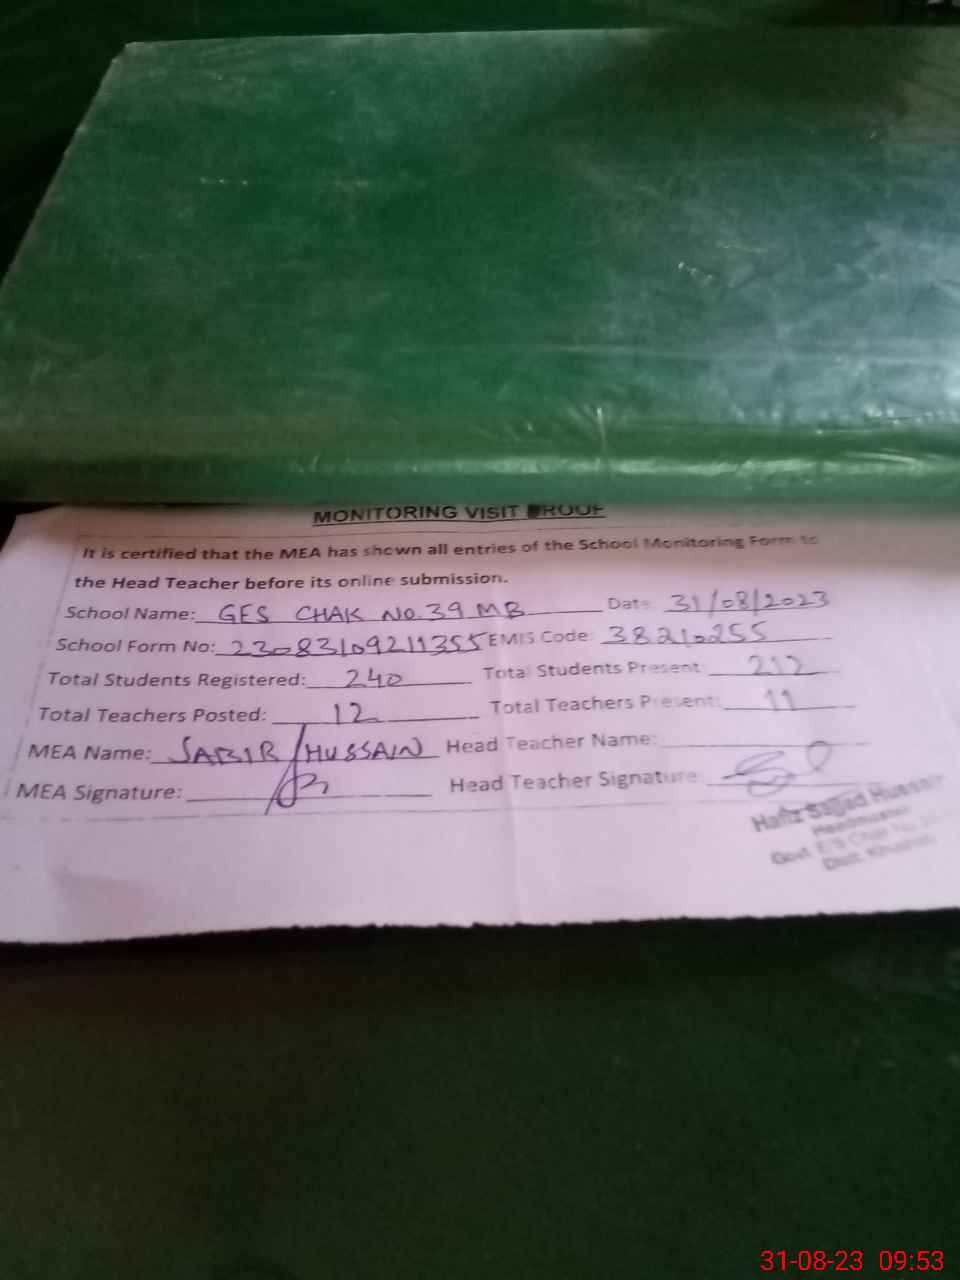 MONITORING VISIT PROOF
It is certified that the MEA has shown all entries of the School Monitoring Form to
the Head Teacher before its online submission.
School Name: GES CHAK NO.39 MB Date: 31/08/2023
School Form No: 23083109211355 EMIS Code: 38210255
Total Students Registered: 240 Total Students Present 212
Total Teachers Posted: 12 Total Teachers Present: 11
MEA Name: SABIR HUSSAIN Head Teacher Name:
MEA Signature: Head Teacher Signature:
Hafiz Sajjad Hussain
Headmaster
Govt. E/S Chak No
Distt. Khushab
31-08-23 09:53